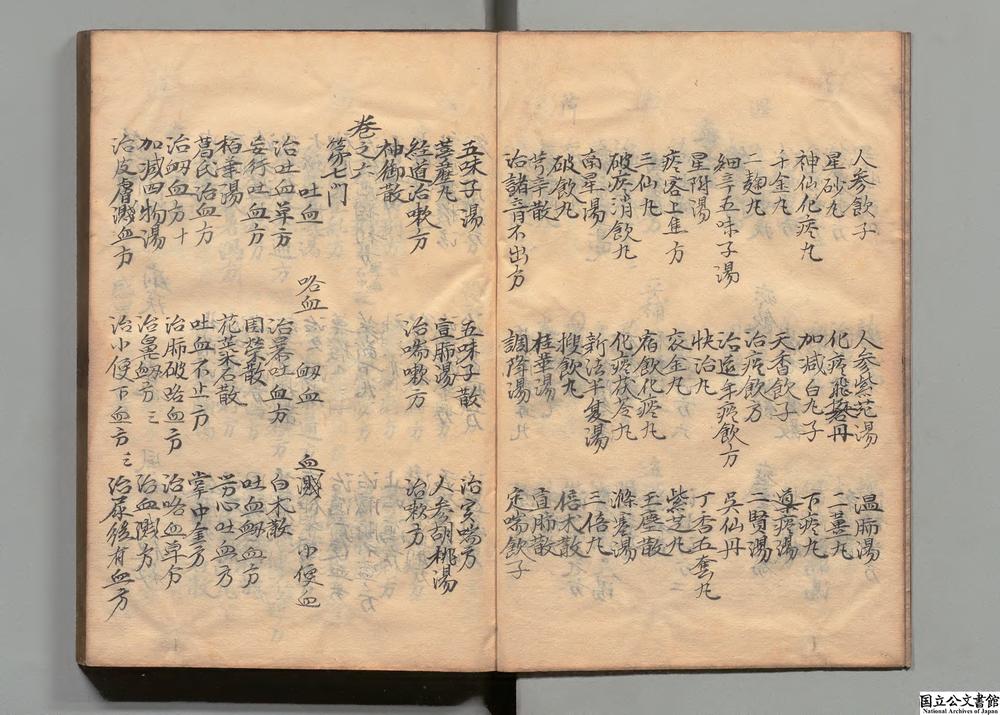 人参飲子　人参紫菀湯　温肺湯
星砂丸　化痰飛礬丹　一薑丸
神仙化痰丸　加減白丸子　下痰丸
千金丸　天香飲子　導痰湯
二麹丸　治痰飲方　二賢湯
細辛五味子湯　治遠年痰飲方　呉仙丹
星附湯　快治丸　丁香五套丸
痰客上焦方　衮金丸　紫芝丸
三仙丸　宿飲化痰丸　玉塵散
破痰消飲丸　化痰茯苓丸　滌痰湯
南星湯　新法半夏湯　三倍丸
破飲丸　搜飲丸　倍朮散
芎辛散　桂華湯　宣肺散
治諸音不出方　調降湯　定喘飲子
五味子湯　五味子散　治実喘方
葶藶丸　宣肺湯　人参胡桃湯
経道治嗽方　治喘嗽方　治欬方
神御散
巻之六
第七門
吐血　咯血　衂血　血濺　小便血
治吐血草方　治暴吐血方　白朮散
妄行吐血方　団栄散　吐血衂血方
栢葉湯　花蕊石散　労心吐血方
葛氏治血方　吐血不止方　掌中金方
治衂血方十　治肺破咯血方　治咯血草方
加減四物湯　治鼻衂方三　治血濺方
治皮膚濺血方　治小便下血方三　治尿後有血方
国立公文書館
National Archives of Japan